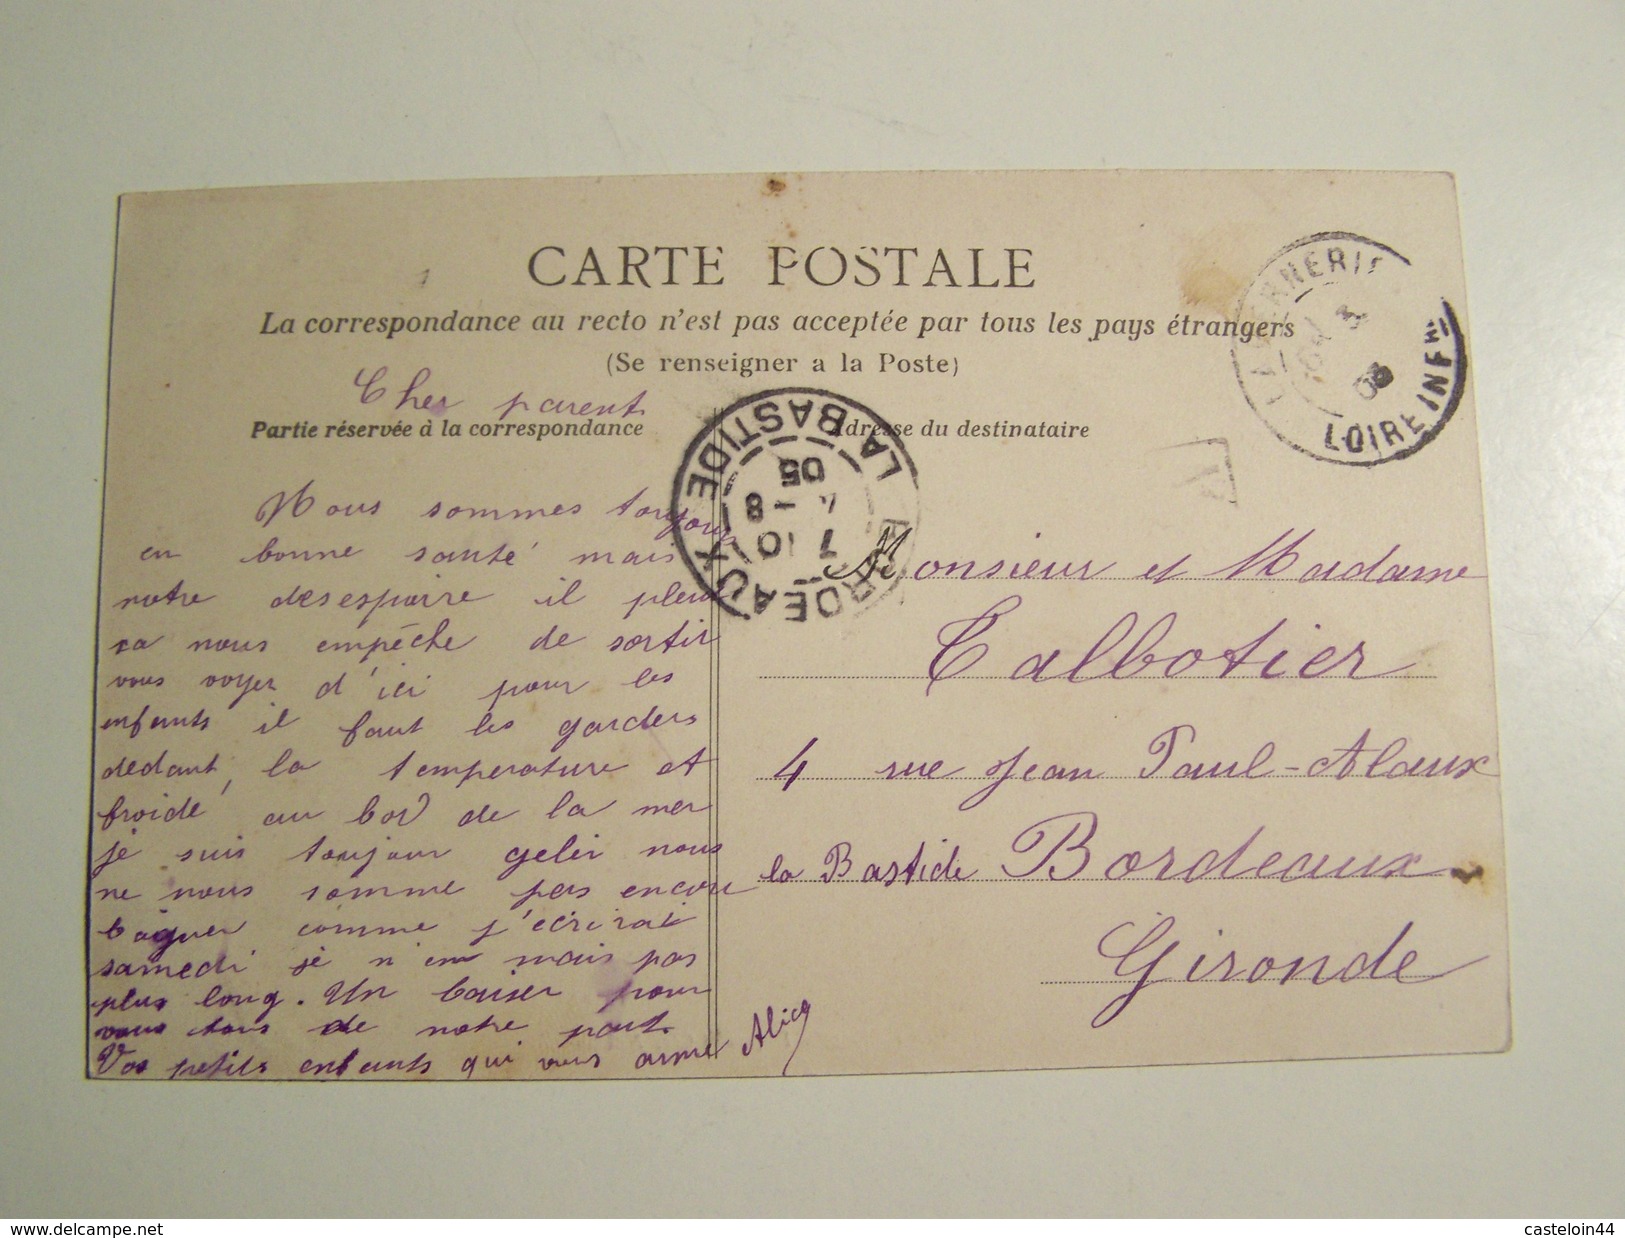 CARTE POSTALE
La correspondance au recto n'est pas acceptée par tous les pays étrangers
(Se renseigner a la Poste)
Cher parent
Partie réservée à la correspondance
Adresse du destinataire
Nous sommes toujours
en bonne santé mais
notre desespoire il pleut
ca nous empéche de sortir
vous voyer d'ici pour les
enfants il faut les garders
dedant, la temperature et
froide au bord de la mer
je suis toujour geler nous
ne nous somme pas encore
baigner comme j'écrirai
samedi je n'em mais pas
plus long. Un baiser pour
vous tous de notre part.
Vos petits enfants qui vous aime Alice
Monsieur et Madame
Talbotier
4 rue Jean Paul-Alaux
la Bastide Bordeaux
Gironde
BORDEAUX
LA BASTIDE
05
LOIRE INFRE
delcampe.net
casteloin44